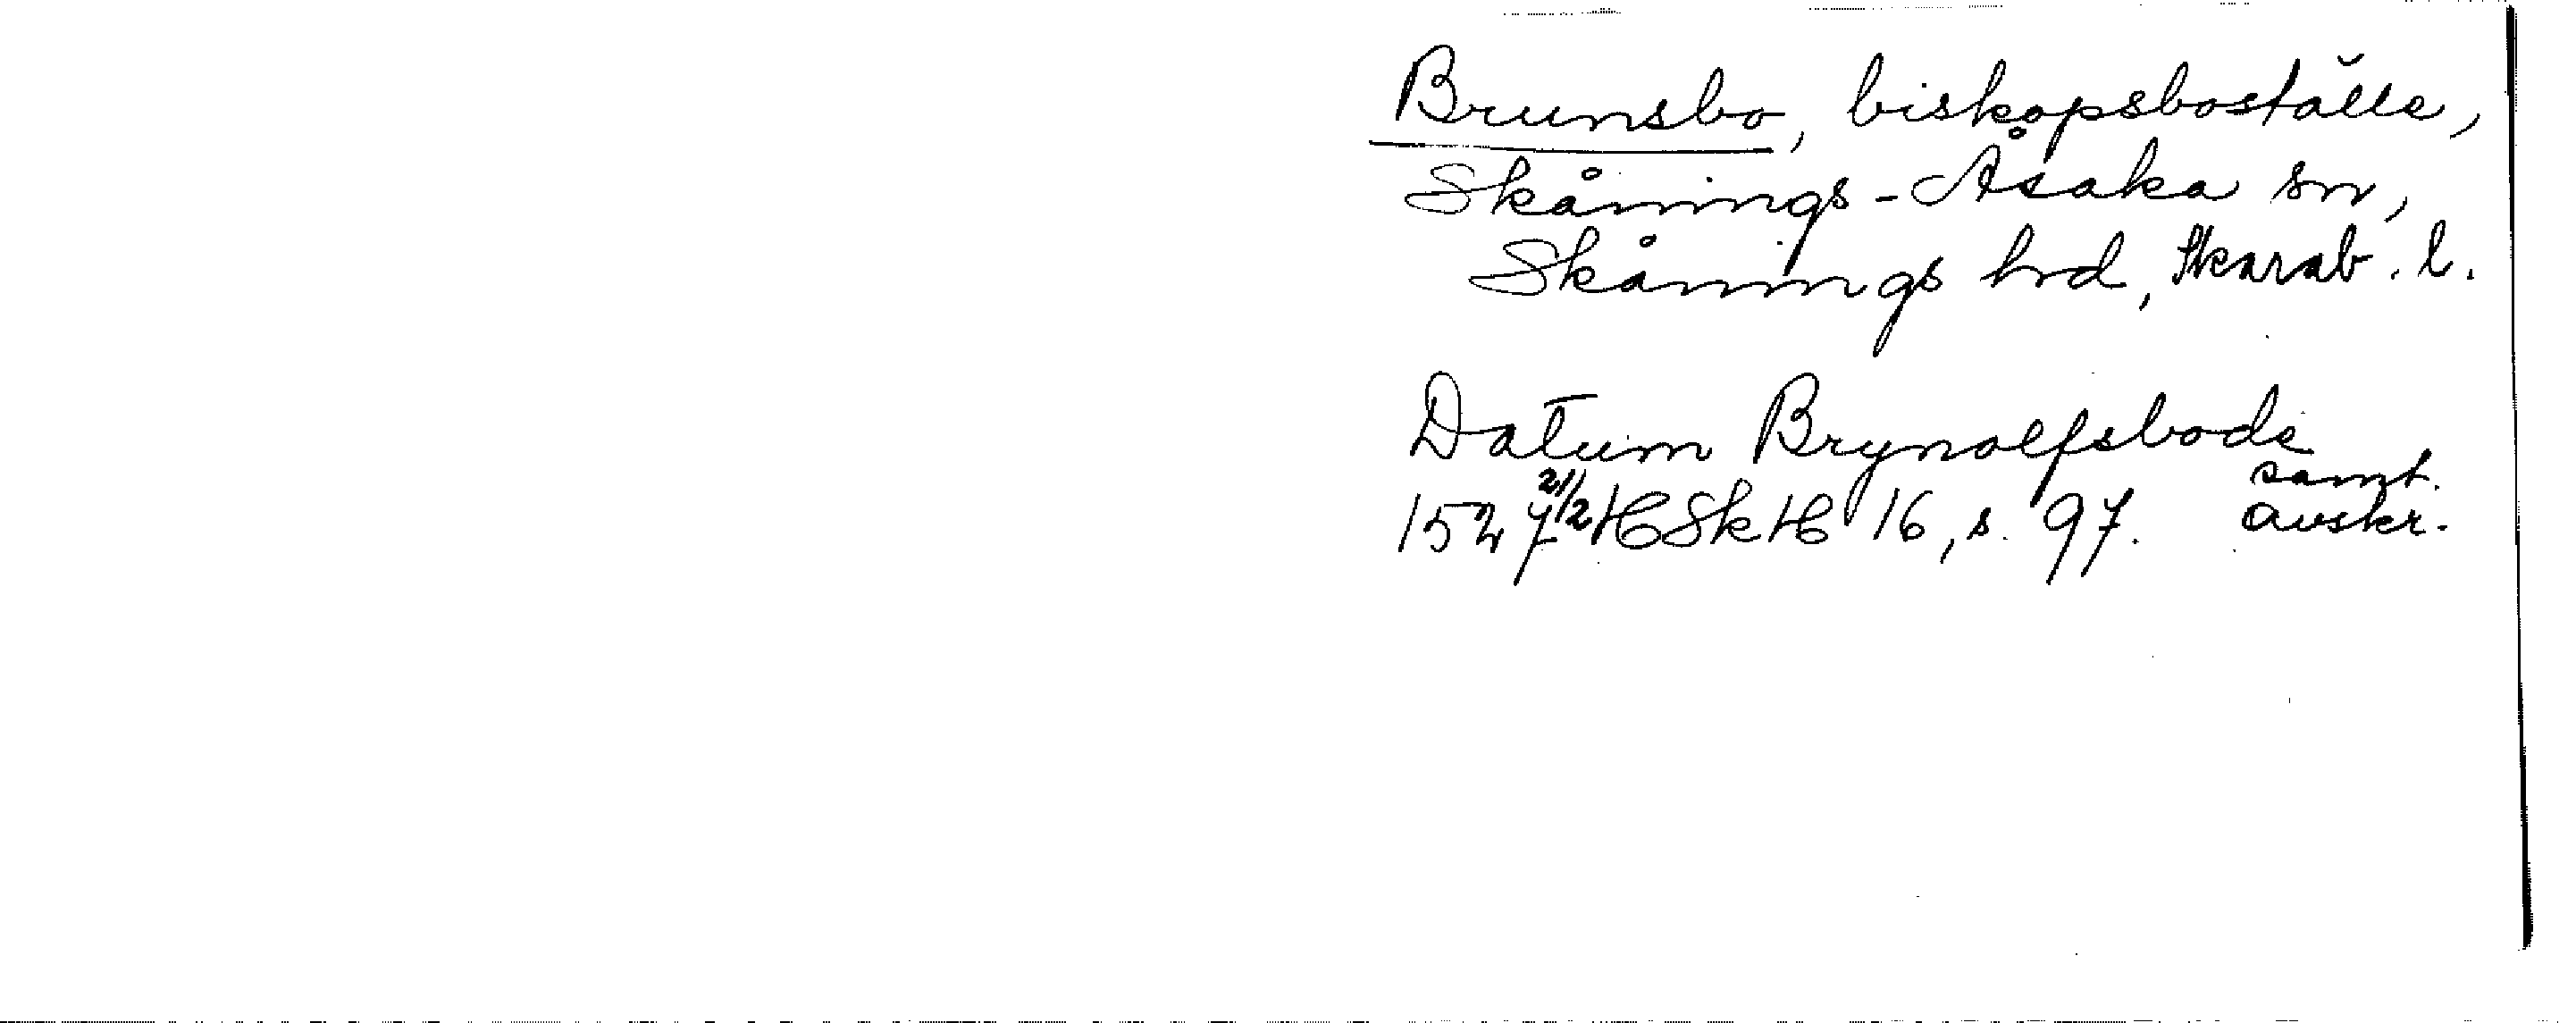 Brunsbo, biskopsboställe,
Skånings-Åsaka sn,
Skånings hd, Skarab. l.
Datum Brynolfsbode
samt.
1527 21/2 HSkH 16, s. 97. avskr.